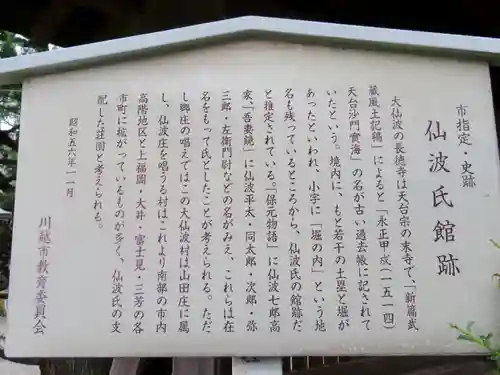 市指定・史跡
仙波氏館跡
大仙波の長徳寺は天台宗の末寺で、「新篇武
蔵風土記稿」によると「永正甲戌（一五一四）
天台沙門實海」の名が古い過去帳に記されて
いたという。境内に、もと若干の土塁と堀が
あったといわれ、小字に「堀の内」という地
名も残っているところから、仙波氏の館跡だ
と推定されている。「保元物語」に仙波七郎高
家、「吾妻鏡」に仙波平太・同太郎・次郎・弥
三郎・左衛門尉などの名がみえ、これらは在
名をもって氏としたことが考えられる。ただ
し郷庄の唱えではこの大仙波村は山田庄に属
し、仙波庄を唱うる村はこれより南部の市内
高階地区と上福岡・大井・富士見・三芳の各
市町に拡がっているものが多く、仙波氏の支
配した荘園と考えられる。
昭和五六年一一月
川越市教育委員会